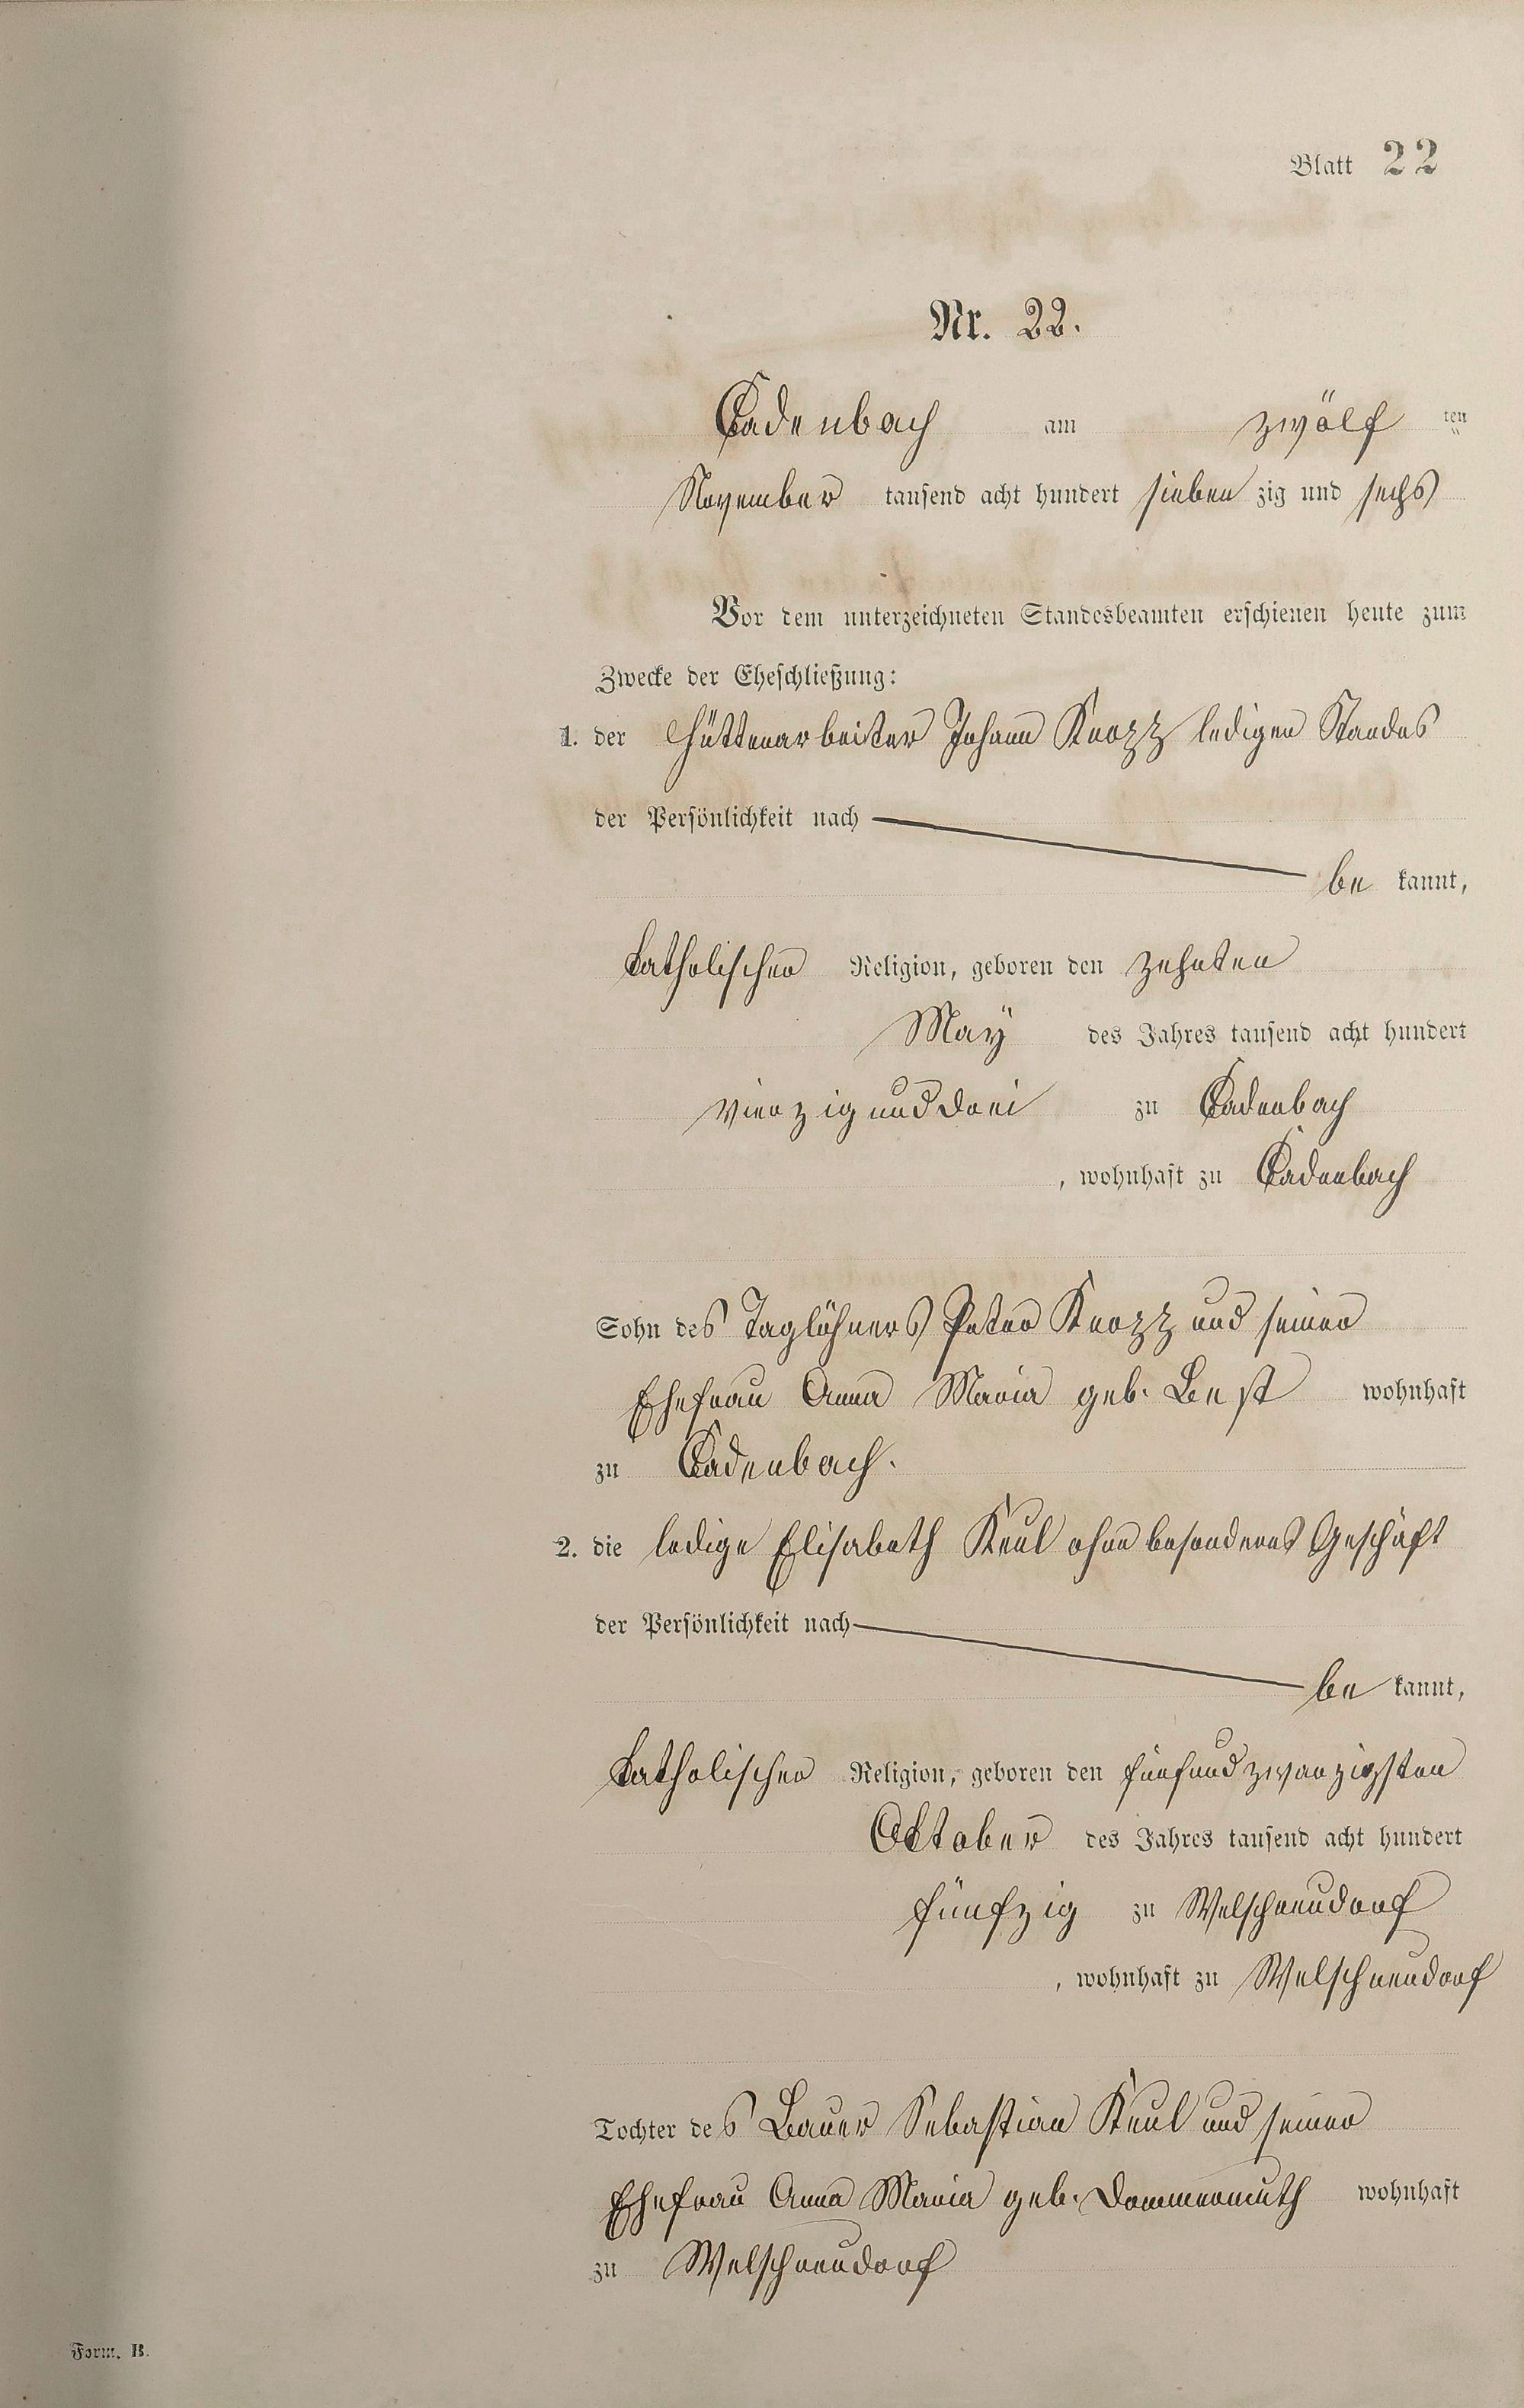 Blatt 22
Nr. 22.
Cadenbach am zwölf ten
November tausend acht hundert sieben zig und sechs
Vor dem unterzeichneten Standesbeamten erschienen heute zum
Zwecke der Eheschließung:
1. der Hüttenarbeiter Johann Knopp ledigen Standes
der Persönlichkeit nach
be kannt,
katholischer Religion, geboren den zehnten
May des Jahres tausend acht hundert
vierzig und drei zu Cadenbach
, wohnhaft zu Cadenbach
Sohn des Taglöhners Peter Knopp und seiner
Ehefrau Anna Maria geb. Best wohnhaft
zu Cadenbach.
2. die ledige Elisabeth Keul ohne besonderes Geschäft
der Persönlichkeit nach
be kannt,
katholischer Religion, geboren den fünfundzwanzigsten
Oktober des Jahres tausend acht hundert
fünfzig zu Welschneudorf
, wohnhaft zu Welschneudorf
Tochter des Bauer Sebastian Keul und seiner
Ehefrau Anna Maria geb. Dommermuth wohnhaft
zu Welschneudorf
Form. B.